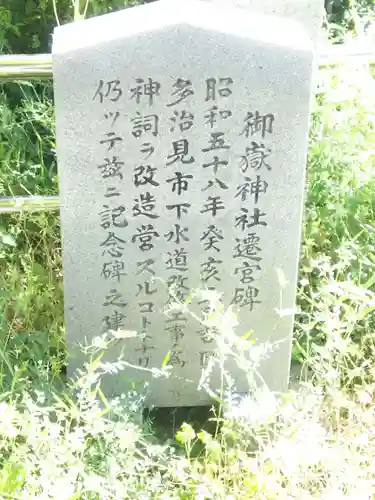 御嶽神社遷宮碑
昭和五十八年癸亥
多治見市下水道改修工事為
神詞ヲ改造営スルコトトナリ
仍ツテ茲ニ記念碑之建